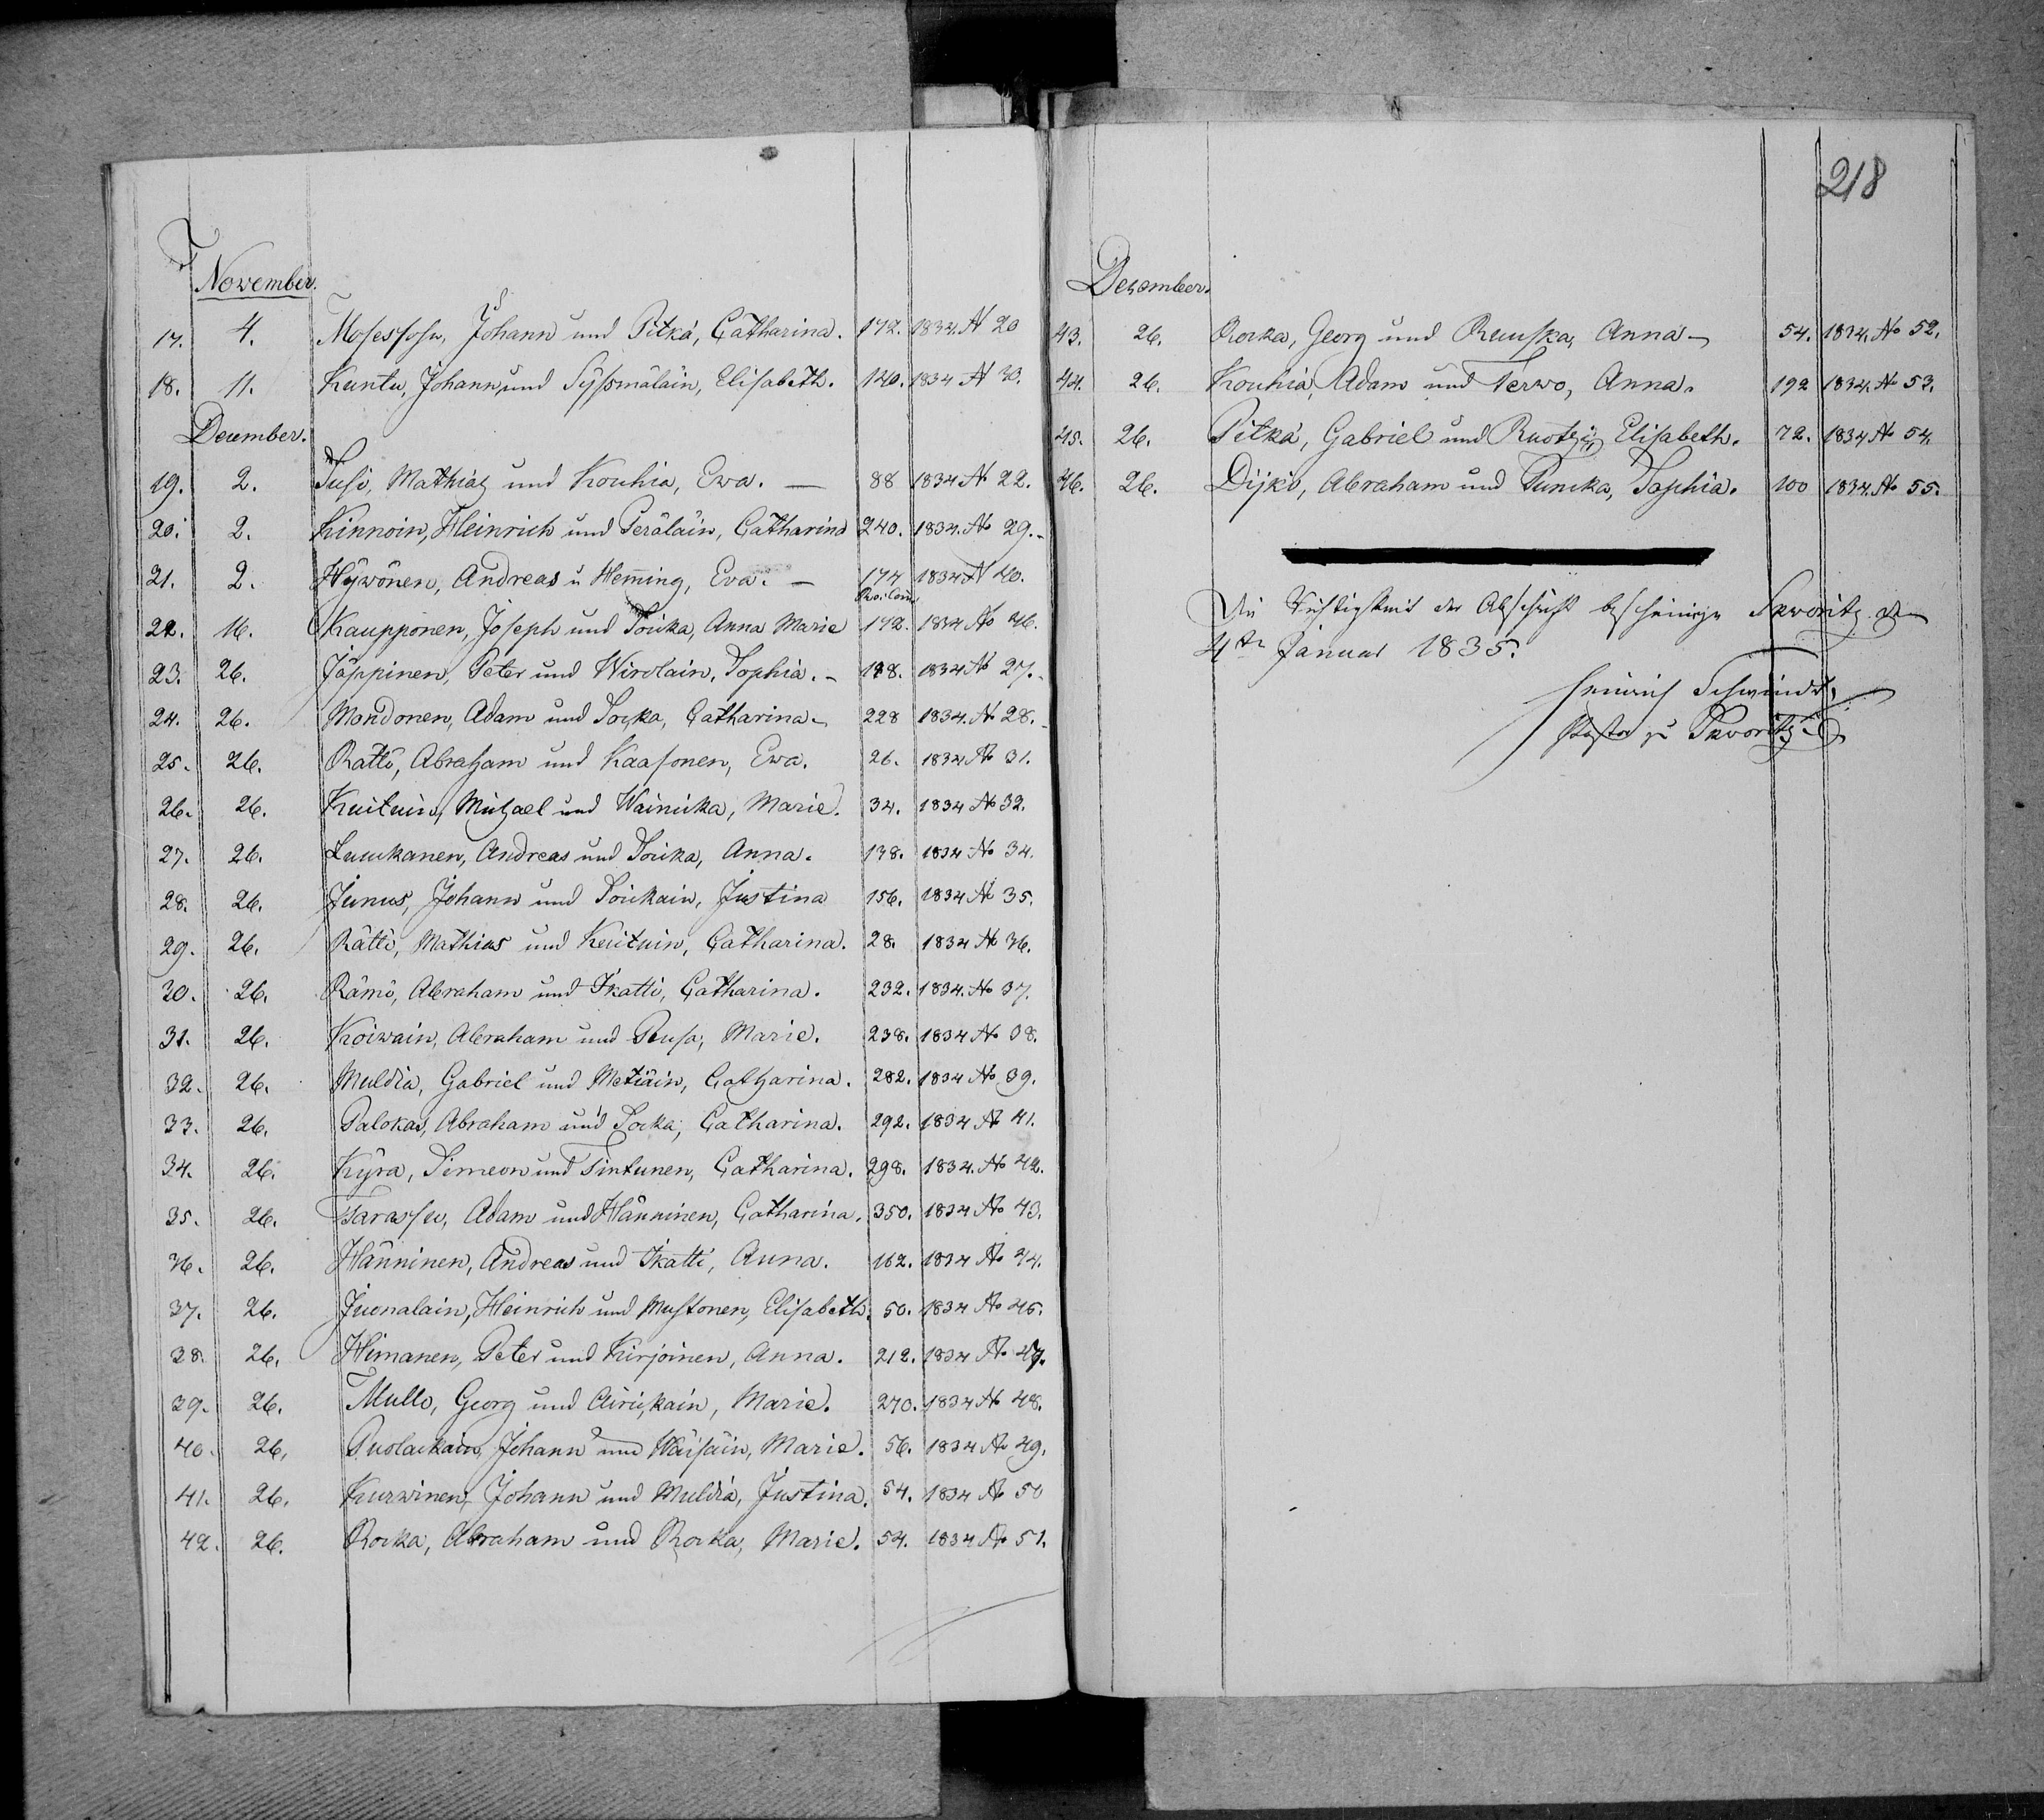 November.
17. 4. Mosessohn, Johann und Pitkä, Catharina. 172. 1834 № 20
18. 11. Kuntu, Johann, und Syssmäläin, Elisabeth. 140. 1834 № 30.
December.
19. 2. Susi, Mathias und Kouhia, Ewa. — 88 1834 № 22.
20. 2. Kinnoin, Heinrich und Peräläin, Catharina 240. 1834. № 29.
21. 2. Hÿwönen, Andreas u Hem̅ing, Eva. — 174 1834 № 40.
22. 16. Kaupponen, Joseph und Soika, Anna Marie 172. 1834 № 46.
23. 26. Jäppinen, Peter und Wirolain, Sophia. - 188. 1834 № 27.
24. 26. Mondonen, Adam und Socka, Catharina - 228 1834. № 28.
25. 26. Rattö, Abraham und Kaasonen, Ewa. 26. 1834 № 31.
26. 26. Kuituin, Michael und Wainicka, Marie. 34. 1834 № 32.
27. 26. Luukanen, Andreas und Soika, Anna. 138. 1834 № 34.
28. 26. Junus, Johann und Soikain, Justina 156. 1834 № 35.
29. 26. Rättö, Mathias und Kuituin, Catharina. 28. 1834 № 36.
30. 26. Rämö, Abraham und Ikatti, Catharina. 232. 1834. № 37.
31. 26. Koiwain, Abraham und Pusa, Marie. 238. 1834 № 38.
32. 26. Muldia, Gabriel und Metiäin, Catharina. 282. 1834 № 39.
33. 26. Palokas, Abraham und Socka, Catharina. 292. 1834 № 41.
34. 26. Kÿrä, Simeon und Tintunen, Catharina. 298. 1834. № 42.
35. 26. Tarassu, Adam und Hänninen, Catharina. 350. 1834 № 43.
36. 26. Hänninen, Andreas und Ikatti, Anna. 162. 1834 № 44.
37. 26. Juonalain, Heinrich und Mustonen, Elisabeth. 50. 1834 № 45.
38. 26. Himanen, Peter und Kirjoinen, Anna. 212. 1834 № 47.
39. 26. Mullo, Georg und Airickain, Marie. 270. 1834 № 48.
40. 26, Puolackain, Johann und Wäisäin, Marie. 56. 1834 № 49.
41. 26. Kurwinen, Johann und Muldia, Justina. 54. 1834 № 50
42. 26. Rocka, Abraham und Rocka, Marie. 54. 1834 № 51.
218
December.
43. 26. Rocka, Georg und Ruuska, Anna - 54. 1834. № 52.
44. 26. Kouhia, Adam und Terwo, Anna. 192 1834. № 53.
45. 26. Pitkä, Gabriel und Elisabeth. 72. 1834 № 54.
46. 26. Dijkö, Abraham und Puncka, Sophia. 100 1834. № 55.
Die Richtigkeit der Abschrift bescheinige Skworitz d
4ten Januar 1835.
Heinrich Schwindt,
Pastor zu Skworitz